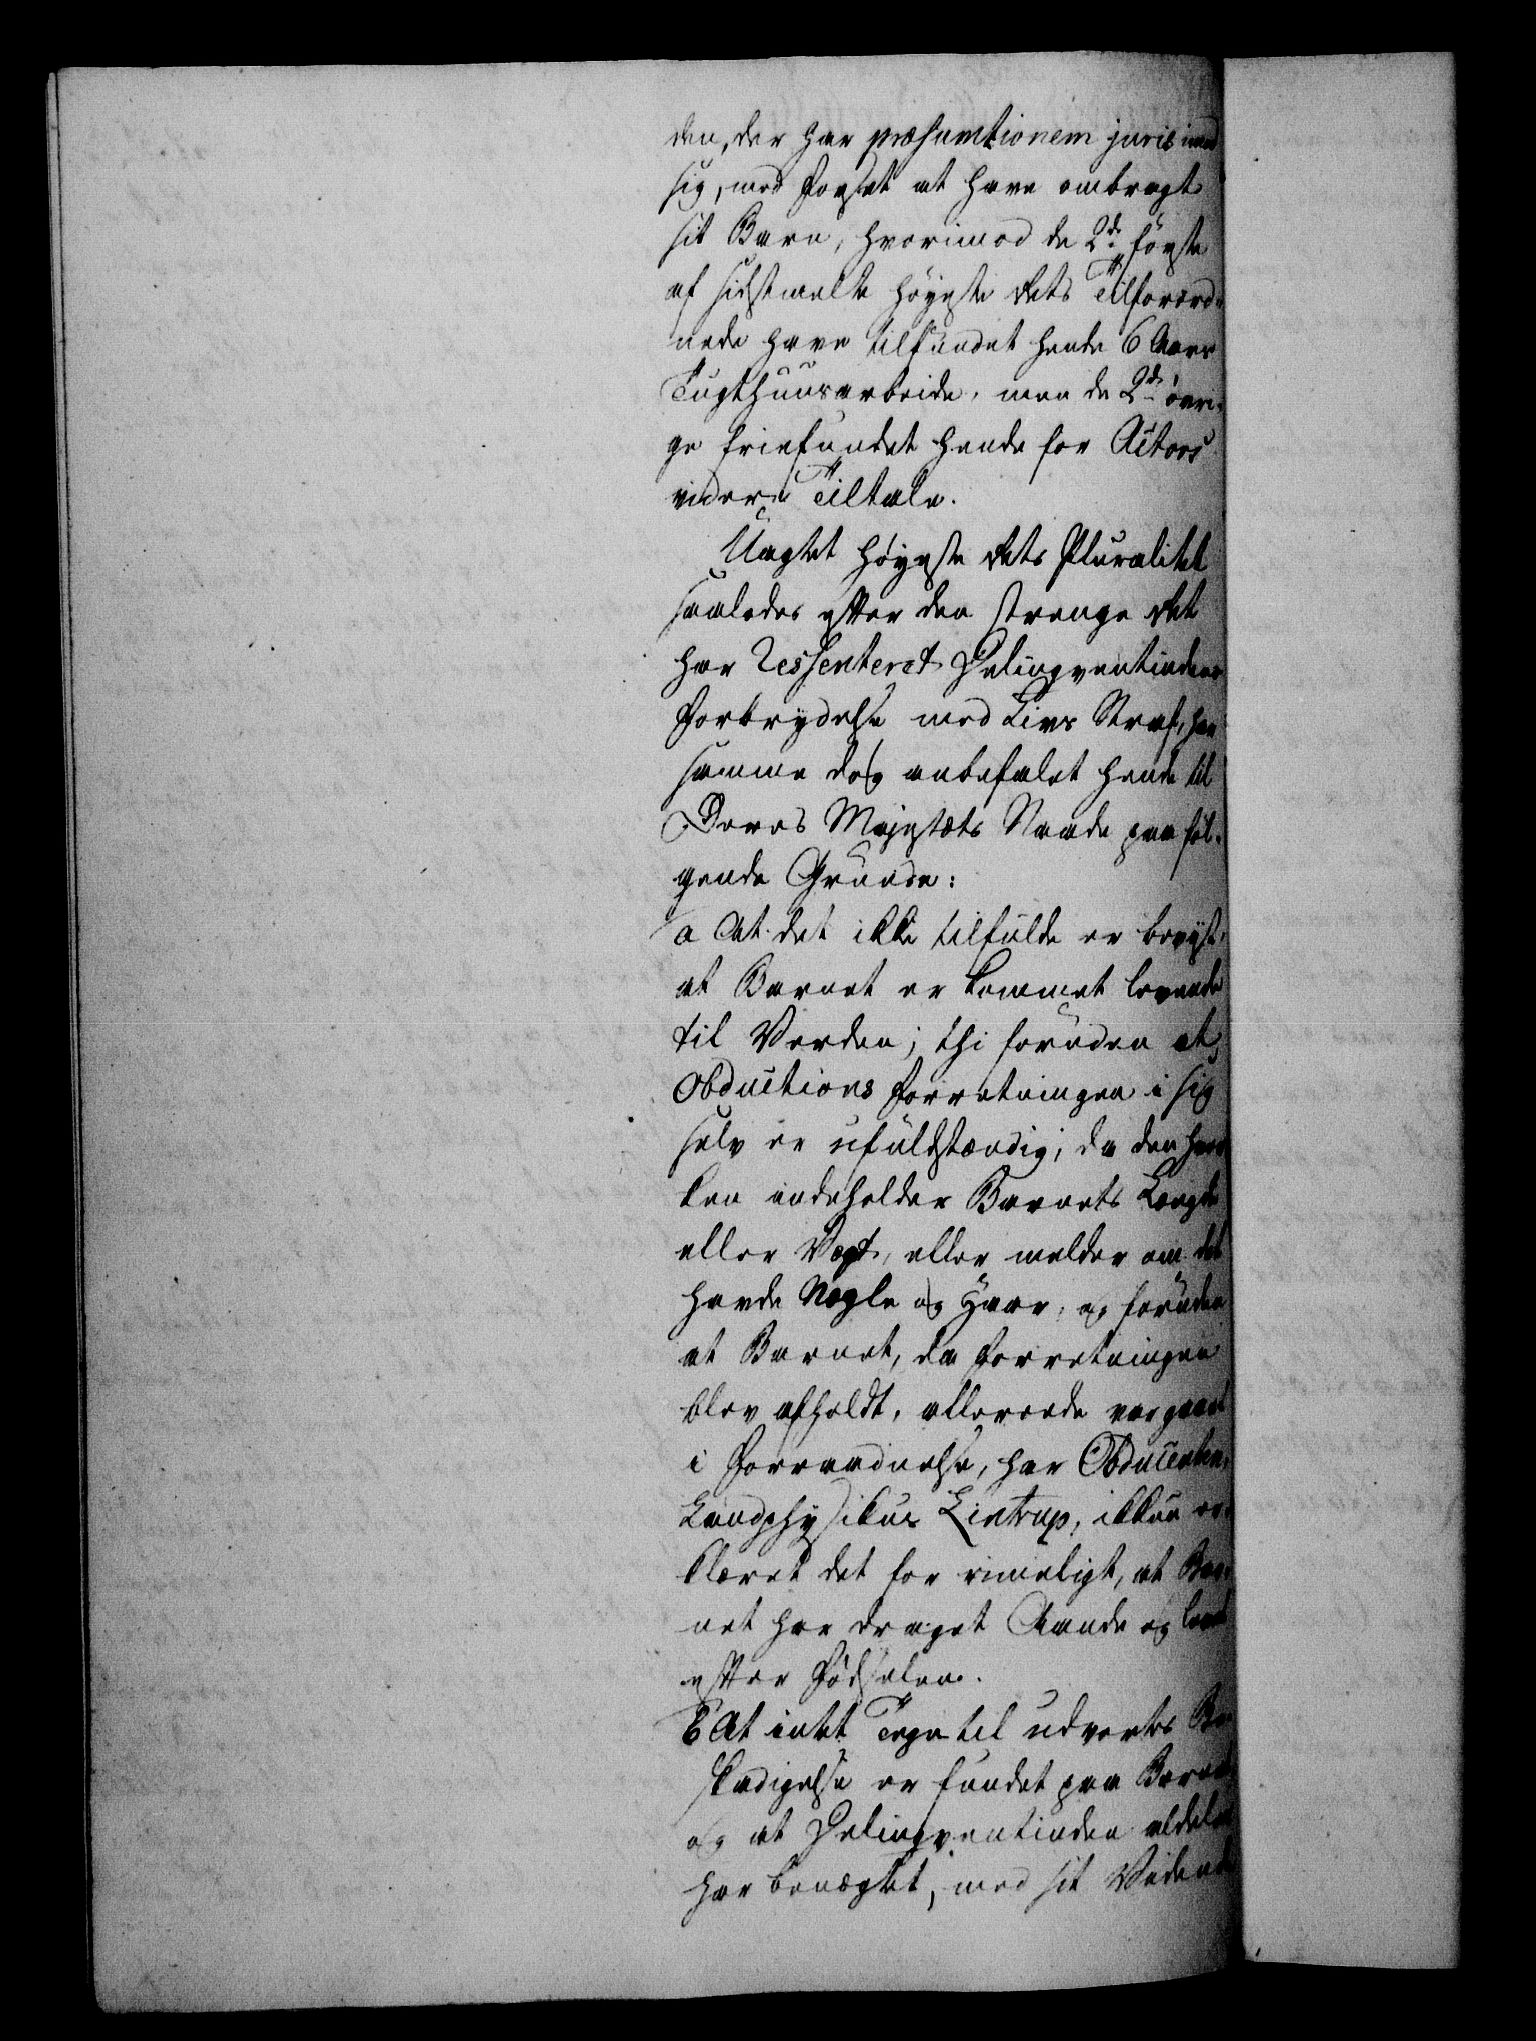 den, der har præsumtionem juris imod
sig, med Forsæt at have ombragt
sit Barn, hvorimod de 2de første
af sidstmelte Høyeste Rets Tilforord-
nede have tilfundet hende 6 Aars
Tugthuusarbeide, men de 2de øvri-
ge friefundet hende for Actors
videre Tiltale.
Uagtet Høyeste Rets Pluralitet
saaledes efter den strenge Ret
har ressenteret Delinqventindens
Forbrydelse med Livs Straf, har
samme dog anbefalet hende til
Deres Majestæts Naade paa føl-
gende Grunde:
a At det ikke tilfulde er beviist,
at Barnet er kommet levende
til Verden; thi foruden at
Obductions Forretningen i sig
selv er ufuldstændig, da den hver-
ken indeholder Barnets Længde
eller Vægt, eller melder om det
havde Negle og Haar, og foruden
at Barnet, da Forretningen
blev afholdt, allereede var gaaet
i Forraadnelse, har Obducenten,
Landphysikus Lintrup, ikkun er-
klæret det for rimeligt, at Bar-
net har draget Aande og levet
efter Fødselen.
b At intet Tegn til udvortes Be-
skadigelse er fundet paa Barnet
og at Delinqventinden aldeles
har benægtet, med sit Vidende